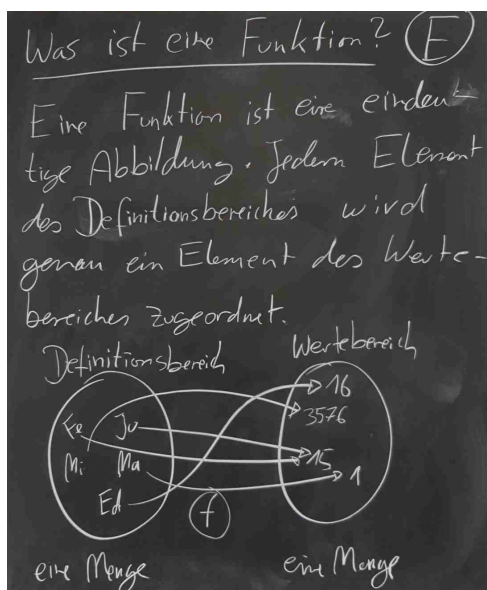 Was ist eine Funktion? E
Eine Funktion ist eine eindeu-
tige Abbildung. Jedem Element
des Definitionsbereiches wird
genau ein Element des Werte-
bereiches zugeordnet.
Definitionsbereich Wertebereich
16
3576
Fe Ju
15
Mi Ma 1
Ed
f
eine Menge eine Menge